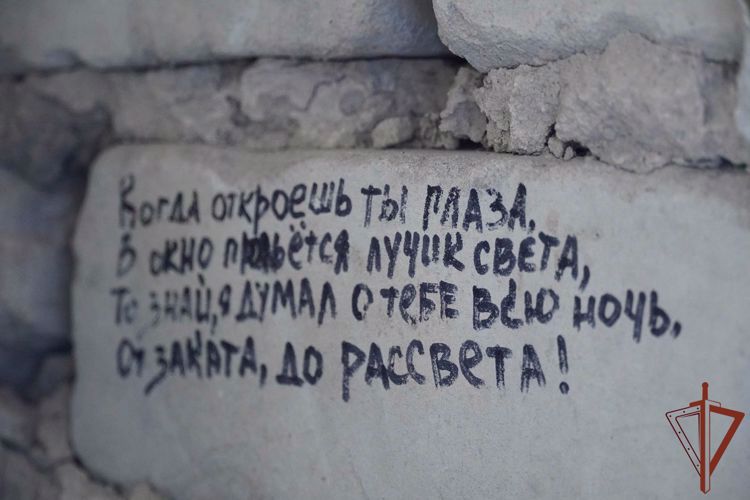 Когда откроешь ты глаза,
В окно прольётся лучик света,
То знай, я думал о тебе всю ночь,
От заката, до рассвета!